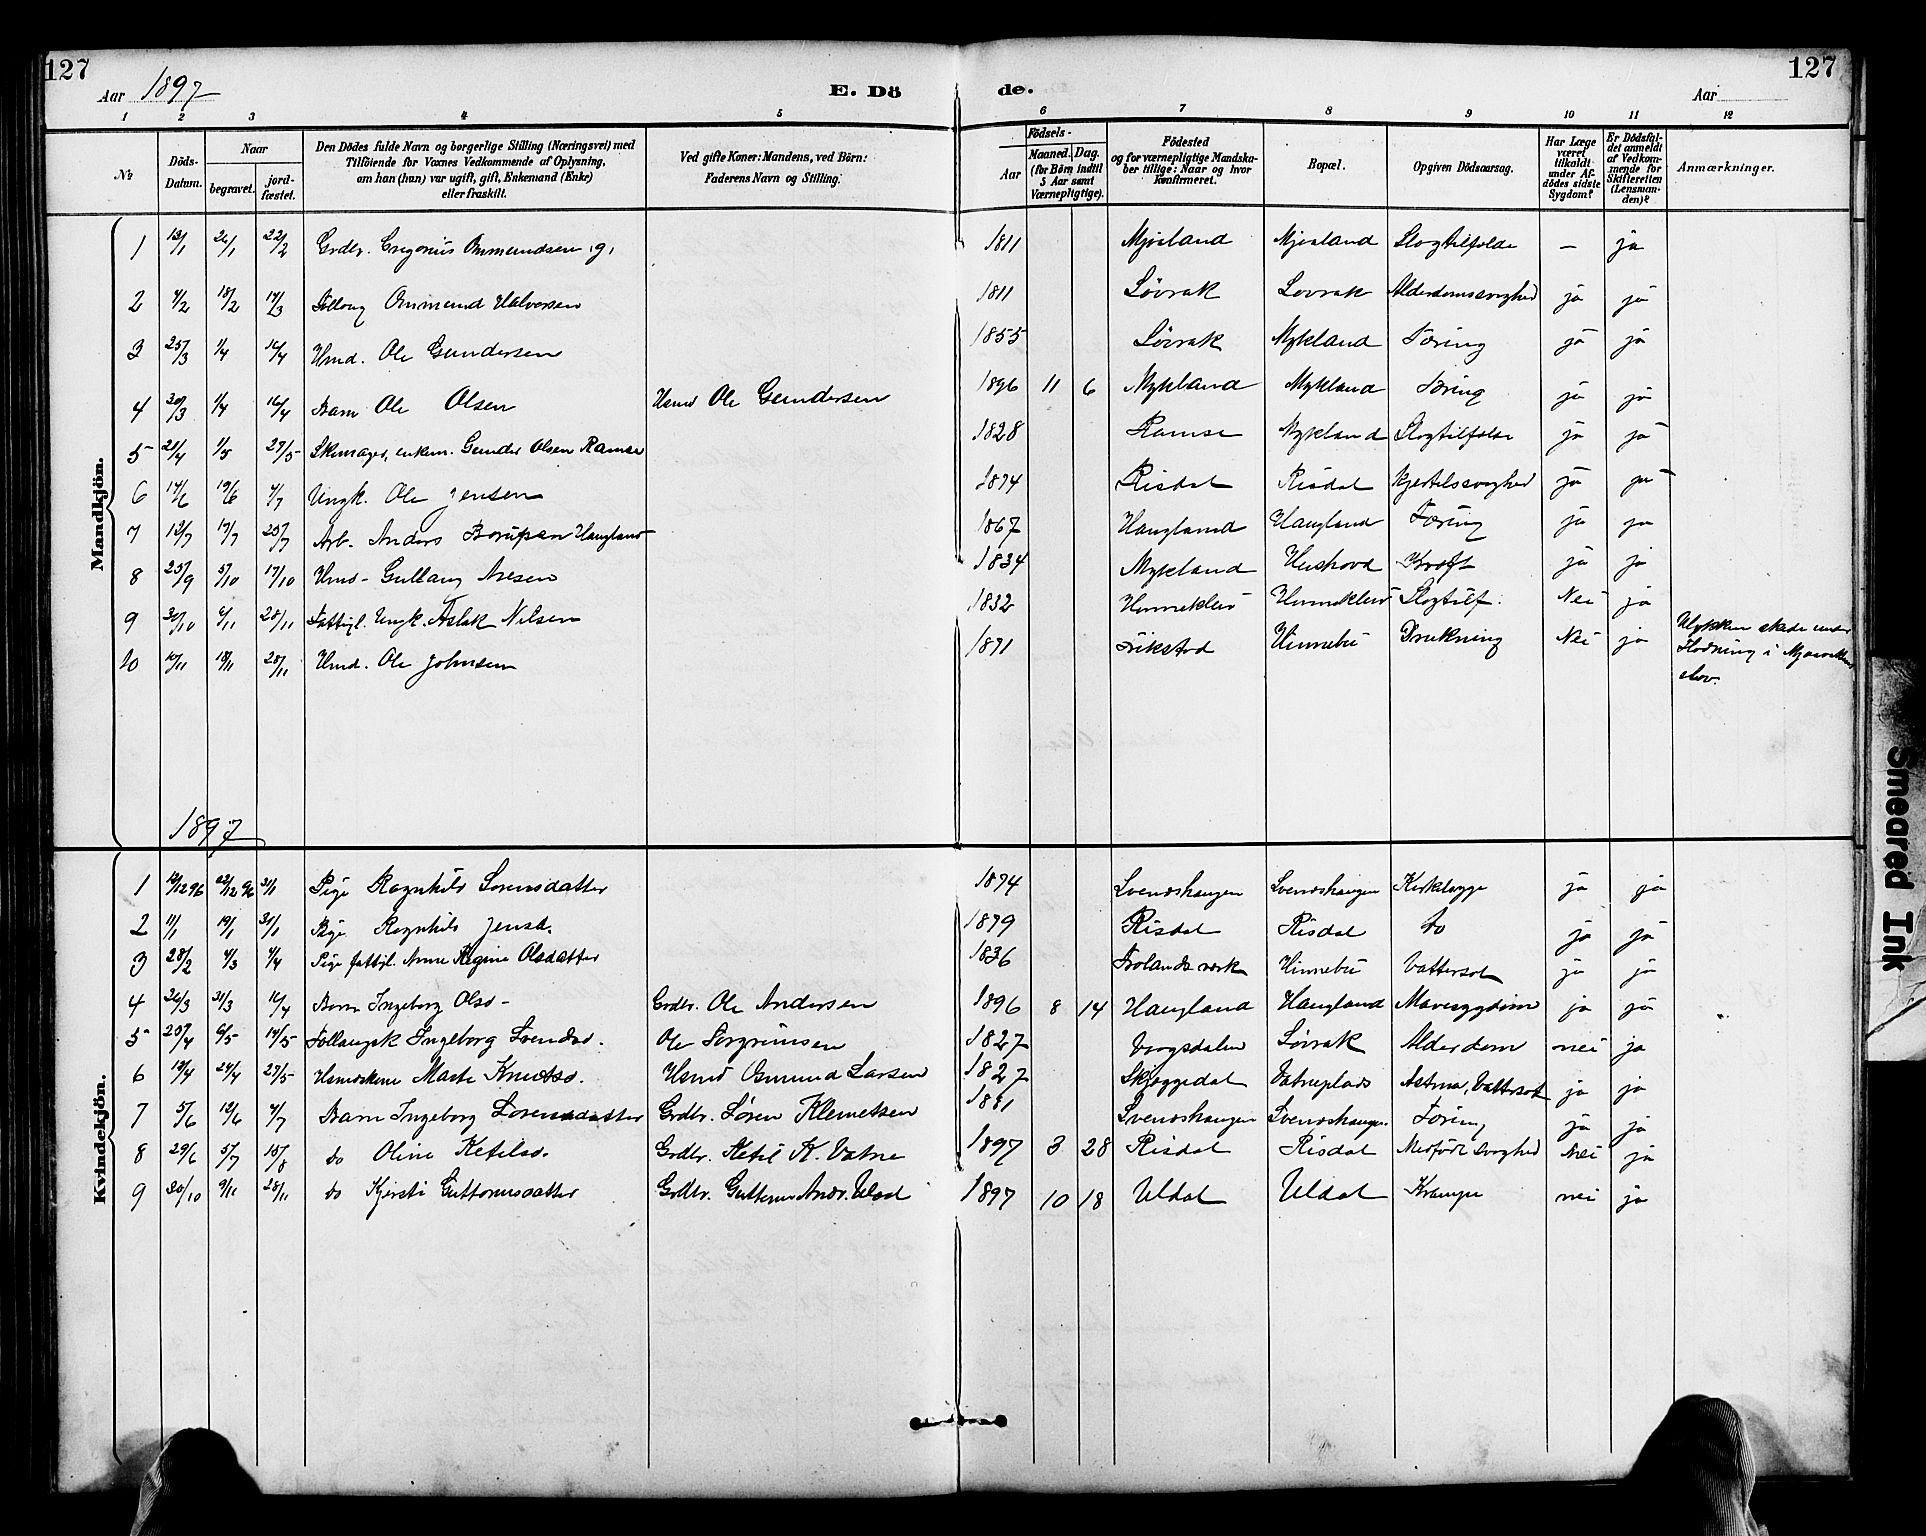 127
127
Aar 1897
E. Döde.
Aar
1 2 3 4 5 6 7 8 9 10 11 12
No
Döds-Datum.
Naar
begravet.
jordfæstet.
Den Dödes fulde Navn og borgerlige Stilling (Næringsvei) med
Tilföiende for Voxnes Vedkommende af Oplysning,
om han (hun) var ugift, gift, Enkemand (Enke)
eller fraskilt.
Ved gifte Koner: Mandens, ved Börn:
Faderens Navn og Stilling.
Födsels-
Aar
Maaned. Dag.
(for Börn indtil
5 Aar samt
Værnepligtige).
Födested
og for værnepligtige Mandska-
ber tillige: Naar og hvor
Konfirmeret.
Bopæl.
Opgiven Dödsaarsag.
Har Læge
været
tilkaldt
under Af-
dödes sidste
Sygdom?
Er Dödsfal-
det anmeldt
af Vedkom-
mende for
Skifteretten
(Lensman-
den)?
Anmærkninger.
Mandkjön.
1 13/1 26/1 22/2 Grdbr. Gregorius Ommundsen, g, 1811 Mjosland Mjosland Slagtilfælde — ja
2 4/2 18/2 14/3 Ommund Halvorsen 1811 Lövrak Lovrak Alderdomssvaghed ja ja
3 25/3 1/4 16/4 Hmd. Ole Gundersen 1855 Lövrak Mykland Tæring ja ja
4 30/3 1/4 16/4 Barn Ole Olsen Hsmd Ole Gundersen 1896 11 6 Mykland Mykland Tæring ja ja
5 21/4 1/5 27/5 Skomager, enkem. Gunder Olsen Ramse 1828 Ramse Mykland Slagtilfælde ja ja
6 14/6 19/6 4/7 Ungk. Ole Jensen 1874 Risdal Risdal Hjertesvaghed ja ja
7 12/7 17/7 25/7 Arb. Anders Haugland 1867 Haugland Haugland Tæring ja ja
8 25/9 5/10 17/10 Hmd. Gullaug Aresen 1834 Mykland Heshovd Kræft ja ja
9 30/10 6/11 28/11 Fattigl. Ungk. Aslak Nilsen 1832 Himneklev Himneklev Slagtilf. Nei ja
10 10/11 18/11 28/11 Hmd. Ole Johnsen 1871 Hinnebu Drukning Nei ja Ulykken skede under
Flødning i
elv.
1897
Kvindekjön.
1 14/12 96 22/12 96 31/1 Pige Ragnhild Sorensdatter 1874 Svendshaugen Svendshaugen ja ja
2 11/1 19/1 31/1 Pige Ragnhild Jensd. 1879 Risdal Risdal do ja ja
3 28/2 4/3 4/4 Pige fattigl. Anne Regine Olsdatter 1836 Frolands værk Hinnebu Vattersot ja ja
4 26/3 31/3 16/4 Barn Ingeborg Olsd. Grdbr. Ole Andersen 1896 8 14 Haugland Haugland Mavesygdom ja ja
5 25/4 6/5 14/5 Ingeborg Svendsd. Ole Torgrimsen 1827 Vaagsdalen Lövrak Alderdom nei ja
6 13/4 24/4 27/5 Hsmdskone Marte Knutsd. Hsmd Osmund Larsen 1827 Skjeggedal Vatneplads Astma, Vattersot ja ja
7 5/6 12/6 4/7 Barn Ingeborg Sorensdatter Grdbr. Sören Klemetsen 1881 Svendshaugen Svendshaugen Tæring ja ja
8 29/6 5/7 15/8 do Oline Ketilsd. Grdbr. Ketil K. Vatne 1897 3 28 Risdal Risdal Medfödt svaghed Nei ja
9 30/10 9/11 28/11 do Kjersti Guttormsdatter Grdbr. Guttorm Andr. Uldal 1897 10 18 Uldal Uldal Krampe nei ja
Smeared Ink